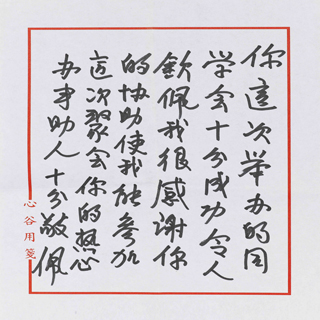 你这次举办的同
学会十分成功令人
钦佩我很感谢你
的协助使我能参加
这次聚会你的热心
办事助人十分敬佩
心谷用笺